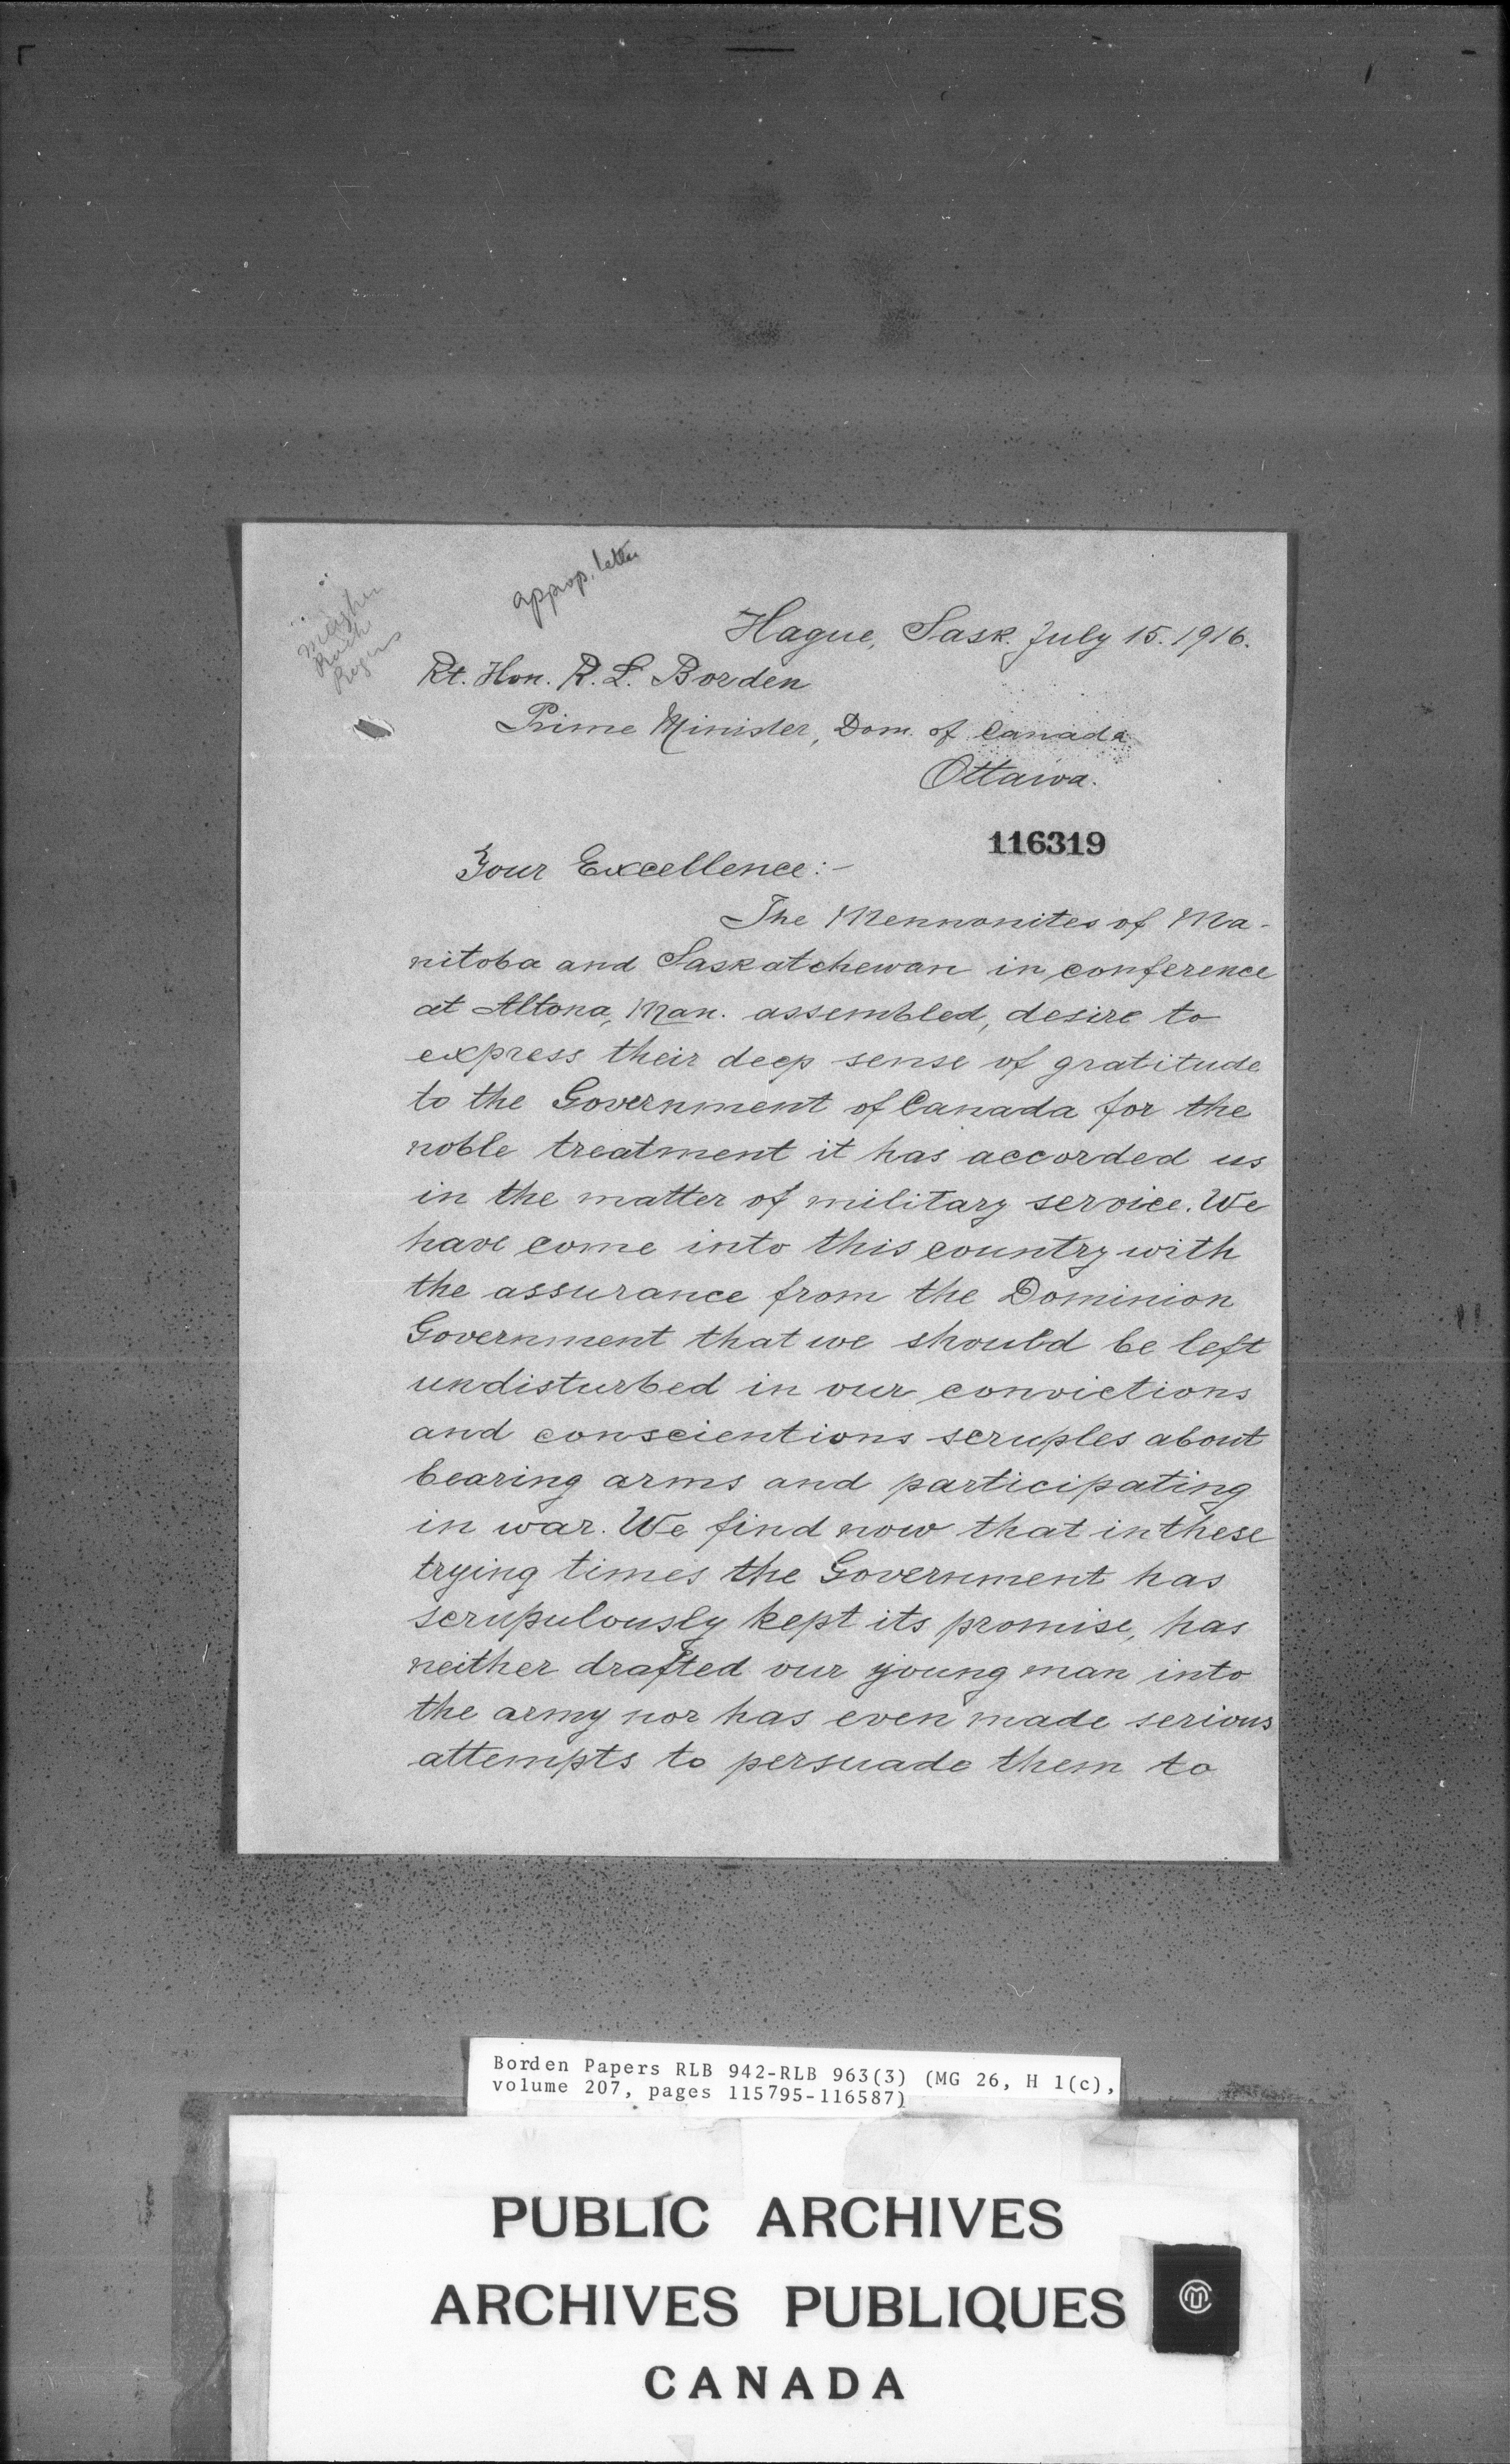 approp. letter
Hague, Sask. July 15. 1916.
Rt. Hon. R. L. Borden
Prime Minister, Dom. of Canada
Ottawa.
116319
Your Excellence:-
The Mennonites of Ma-
nitoba and Saskatchewan in conference
at Altona, Man. assembled, desire to
express their deep sense of gratitude
to the Government of Canada for the
noble treatment it has accorded us
in the matter of military service. We
have come into this country with
the assurance from the Dominion
Government that we should be left
undisturbed in our convictions
and conscientions scruples about
bearing arms and participating
in war. We find now that in these
trying times the Government has
scrupulously kept its promise, has
neither drafted our young man into
the army nor has even made serious
attempts to persuade them to
Borden Papers RLB 942-RLB 963(3) (MG 26, H 1(c),
volume 207, pages 115795-116587)
PUBLIC ARCHIVES
ARCHIVES PUBLIQUES
CANADA